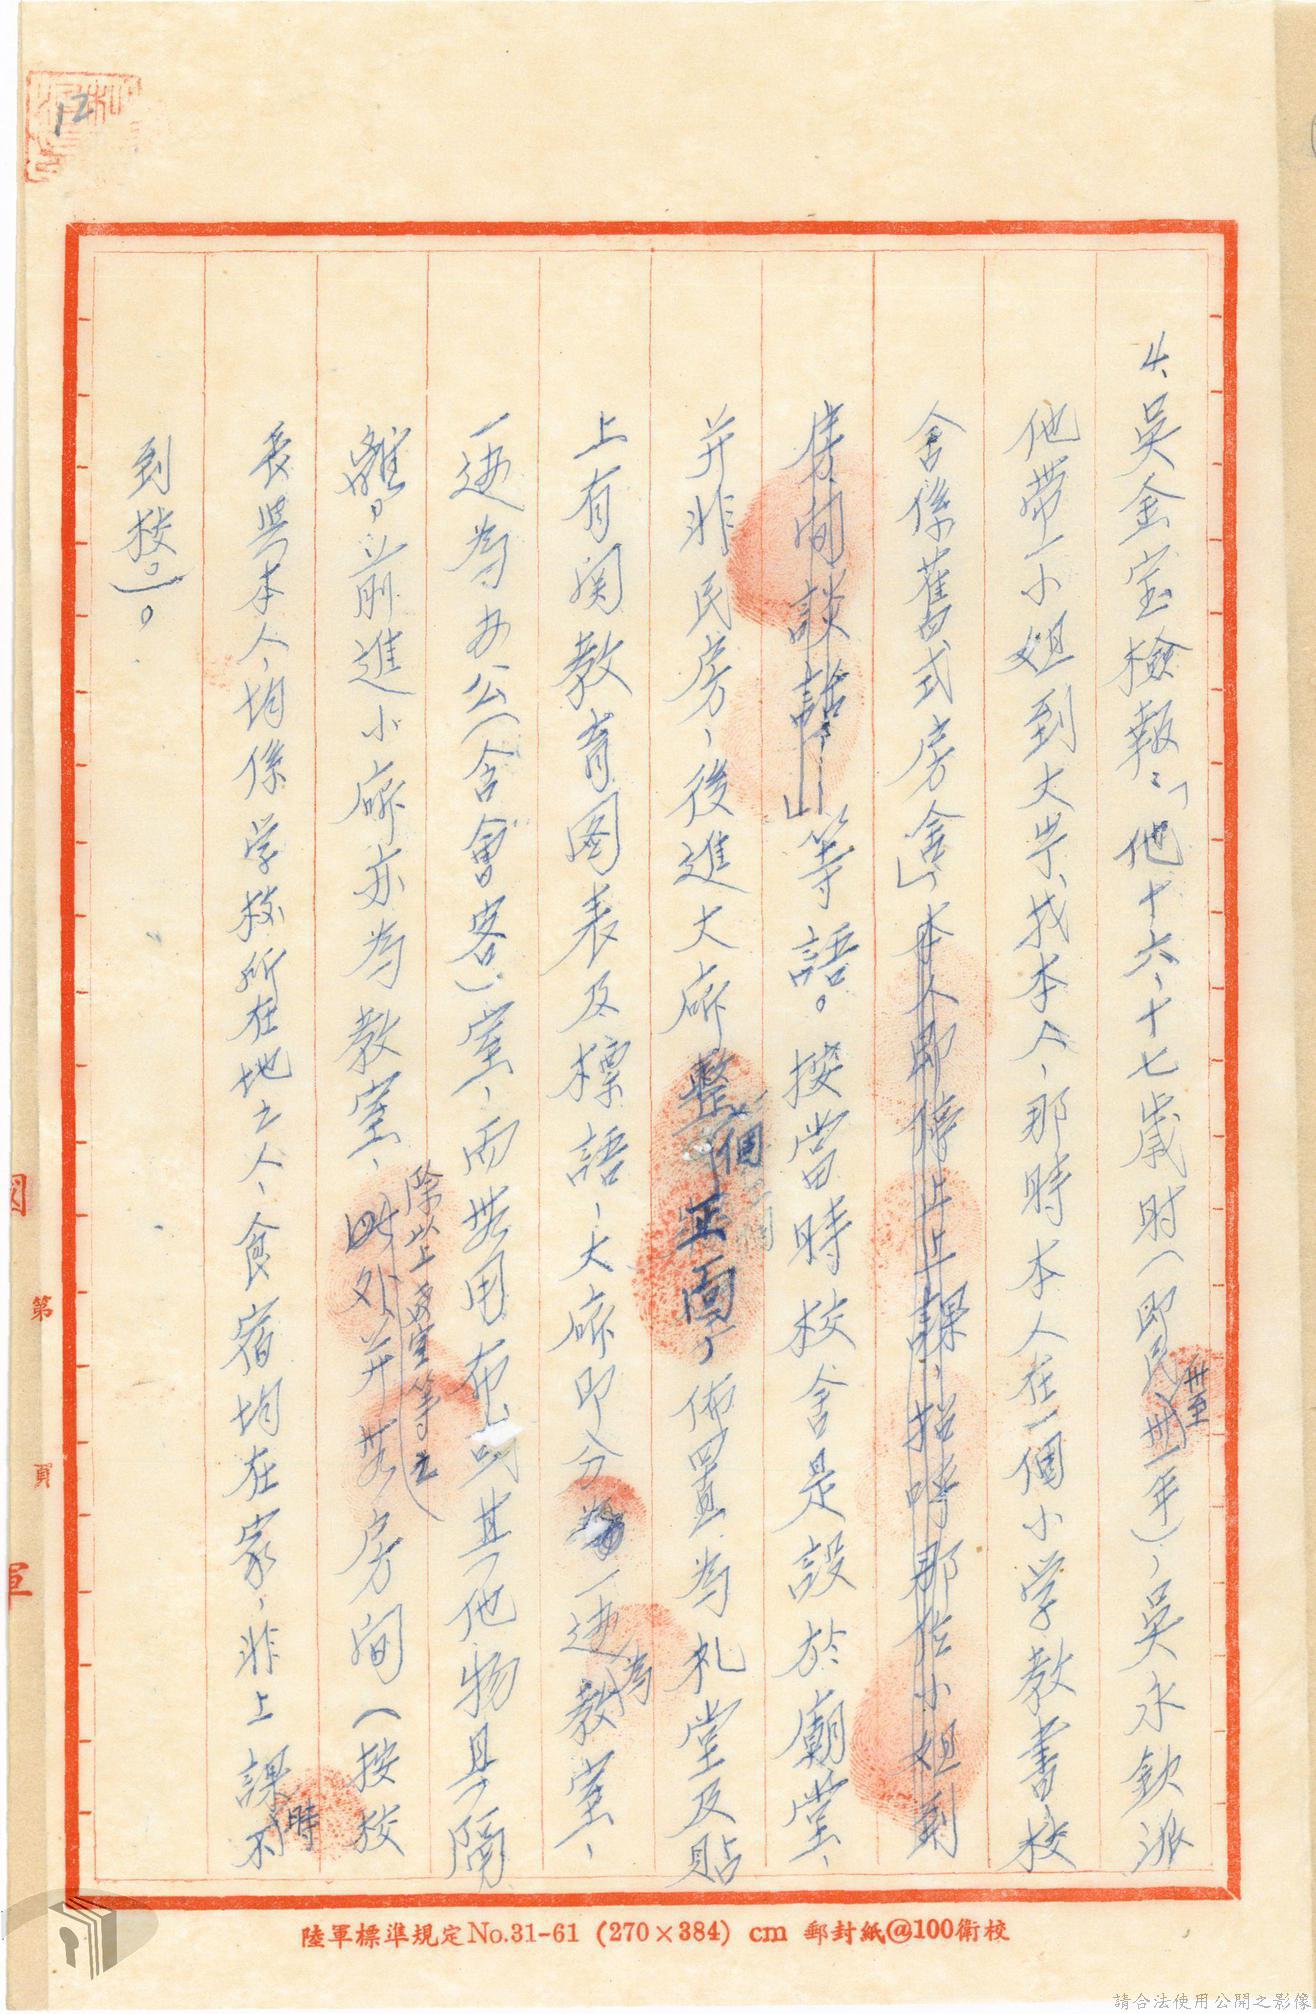 12
4、吴金宝檢報:「他十六、十七歲時(即民卅至卅一年),吴永欽派
他帶一小姐到大岸找本人,那時本人在一個小学教書校
舍係舊式房舍」本人即停止上課,招呼那位小姐到
房间談話……」等語。按當時校舍是設於廟堂、
并非民房,後進大廍整個正面,佈置為礼堂及貼
上有関教育图表及標語,大廍即分為一边為教室、
一边為办公(含會客)室,而世用布或其他物具隔
離。前進小廍亦為教室,除以上教室等之外并世房间(按校
長與本人,均係学校所在地之人,食宿均在家,非上課時不
到校。)。
第 頁
陸軍標準規定No.31-61 (270×384) cm 郵封紙@100衛校
請合法使用公開之影像